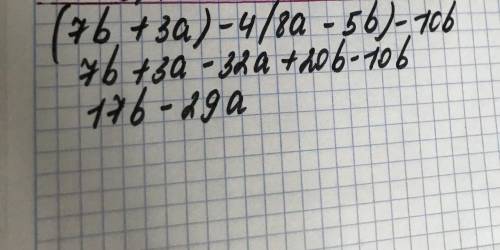 (7b + 3a) - 4(8a - 5b) - 10b
7b + 3a - 32a + 20b - 10b
17b - 29a